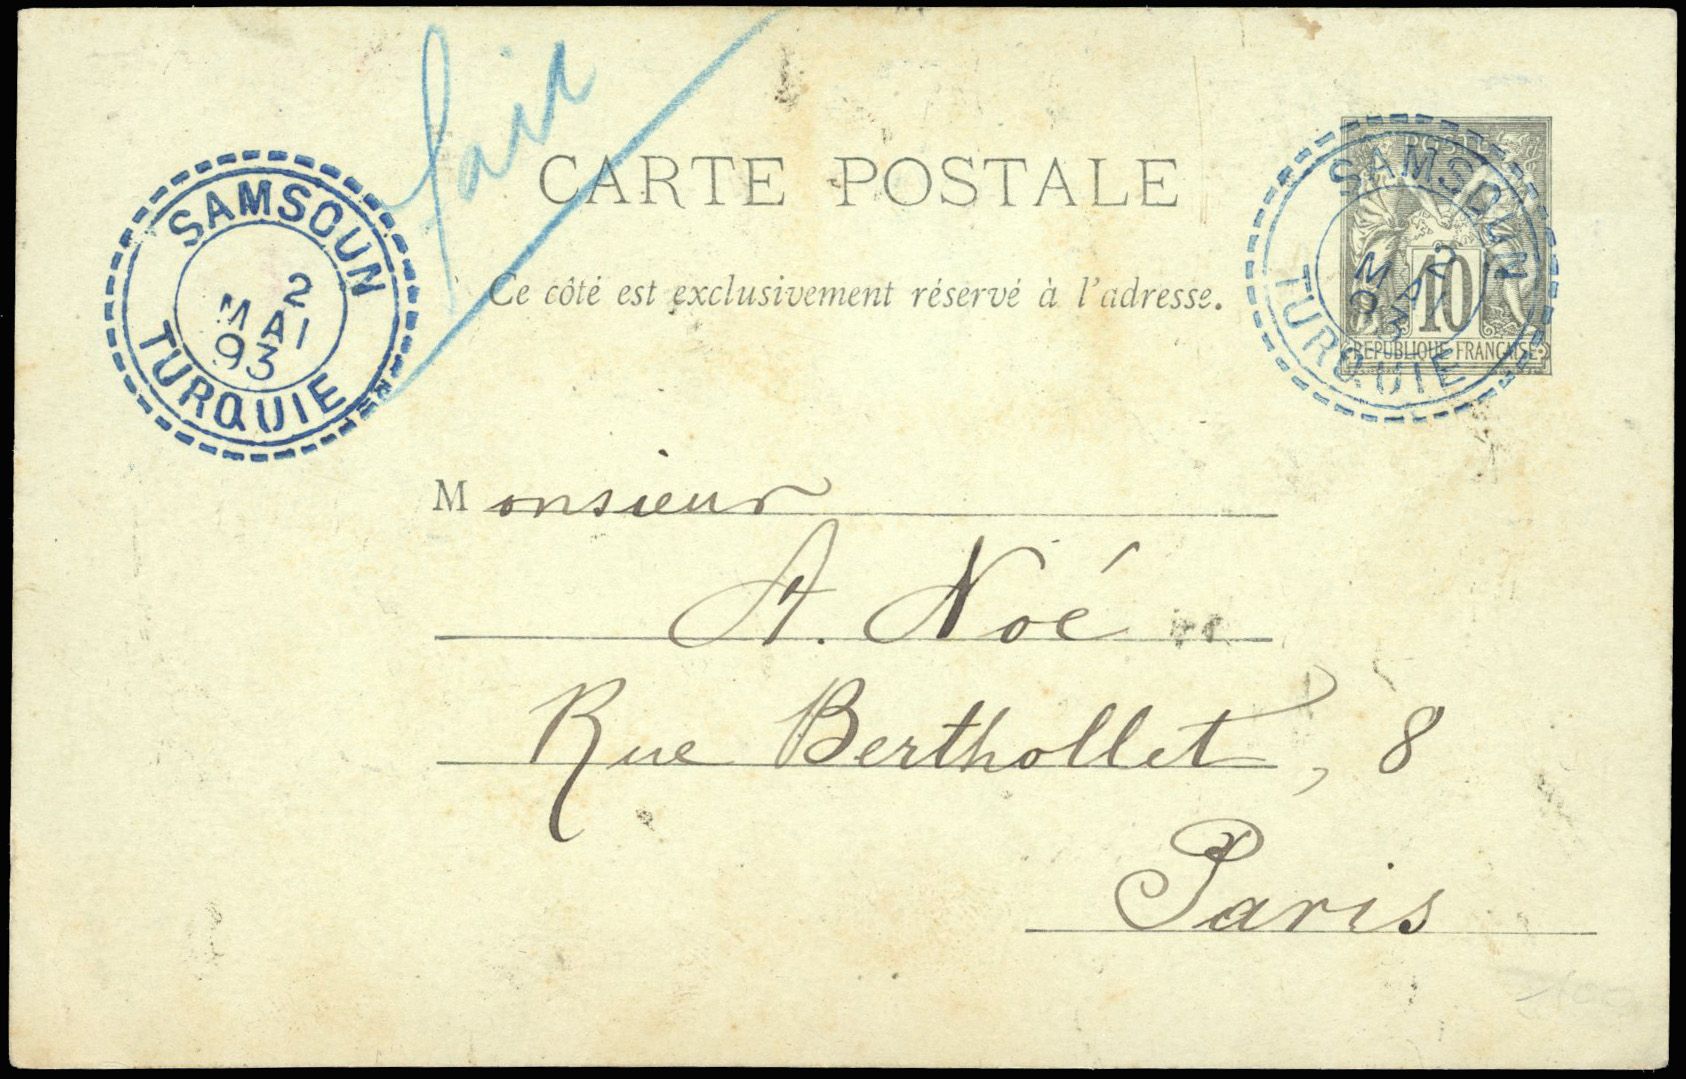 fair
CARTE POSTALE
Ce côté est exclusivement réservé à l'adresse.
SAMSOUN
2
MAI
93
TURQUIE
POSTES
SAMSOUN
2
MAI
93
10
TURQUIE
REPUBLIQUE FRANÇAISE
Monsieur
A. Noé
Rue Berthollet, 8
Paris